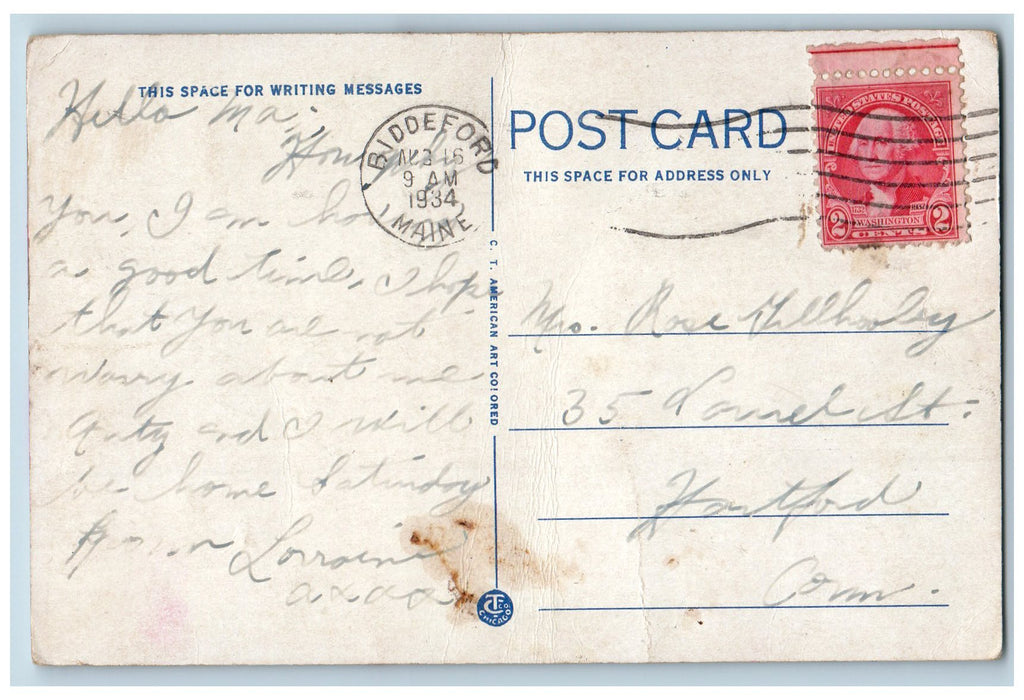 THIS SPACE FOR WRITING MESSAGES
Hello Ma,
How
You, I am ha
a good time, I hope
that you are not
worry about me
Anty and I will
be home Saturday
From Lorraine
xxxx
BIDDEFORD
AUG 16
9 AM
1934
MAINE
C. T. AMERICAN ART COLORED
CT CO
CHICAGO
POST CARD
THIS SPACE FOR ADDRESS ONLY
UNITED STATES POSTAGE
2 WASHINGTON 2
CENTS
Mrs. Rose
35 Laurel St.
Hartford
Conn.